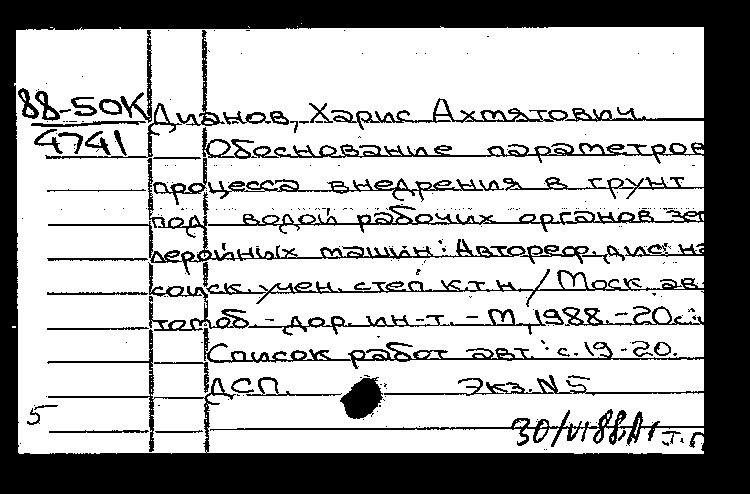 88-50К
4741
Дианов, Харис Ахмятович.
Обоснование параметров
процесса внедрения в грунт
под водой рабочих органов зем
леройных машин: Автореф. дис. на
соиск. учен. степ. к.т.н. / Моск. ав-
томоб.-дор. ин-т. - М., 1988. - 20с.:
Список работ авт.: с.19-20.
ДСП. Экз. N 5
5
30/VI 88.